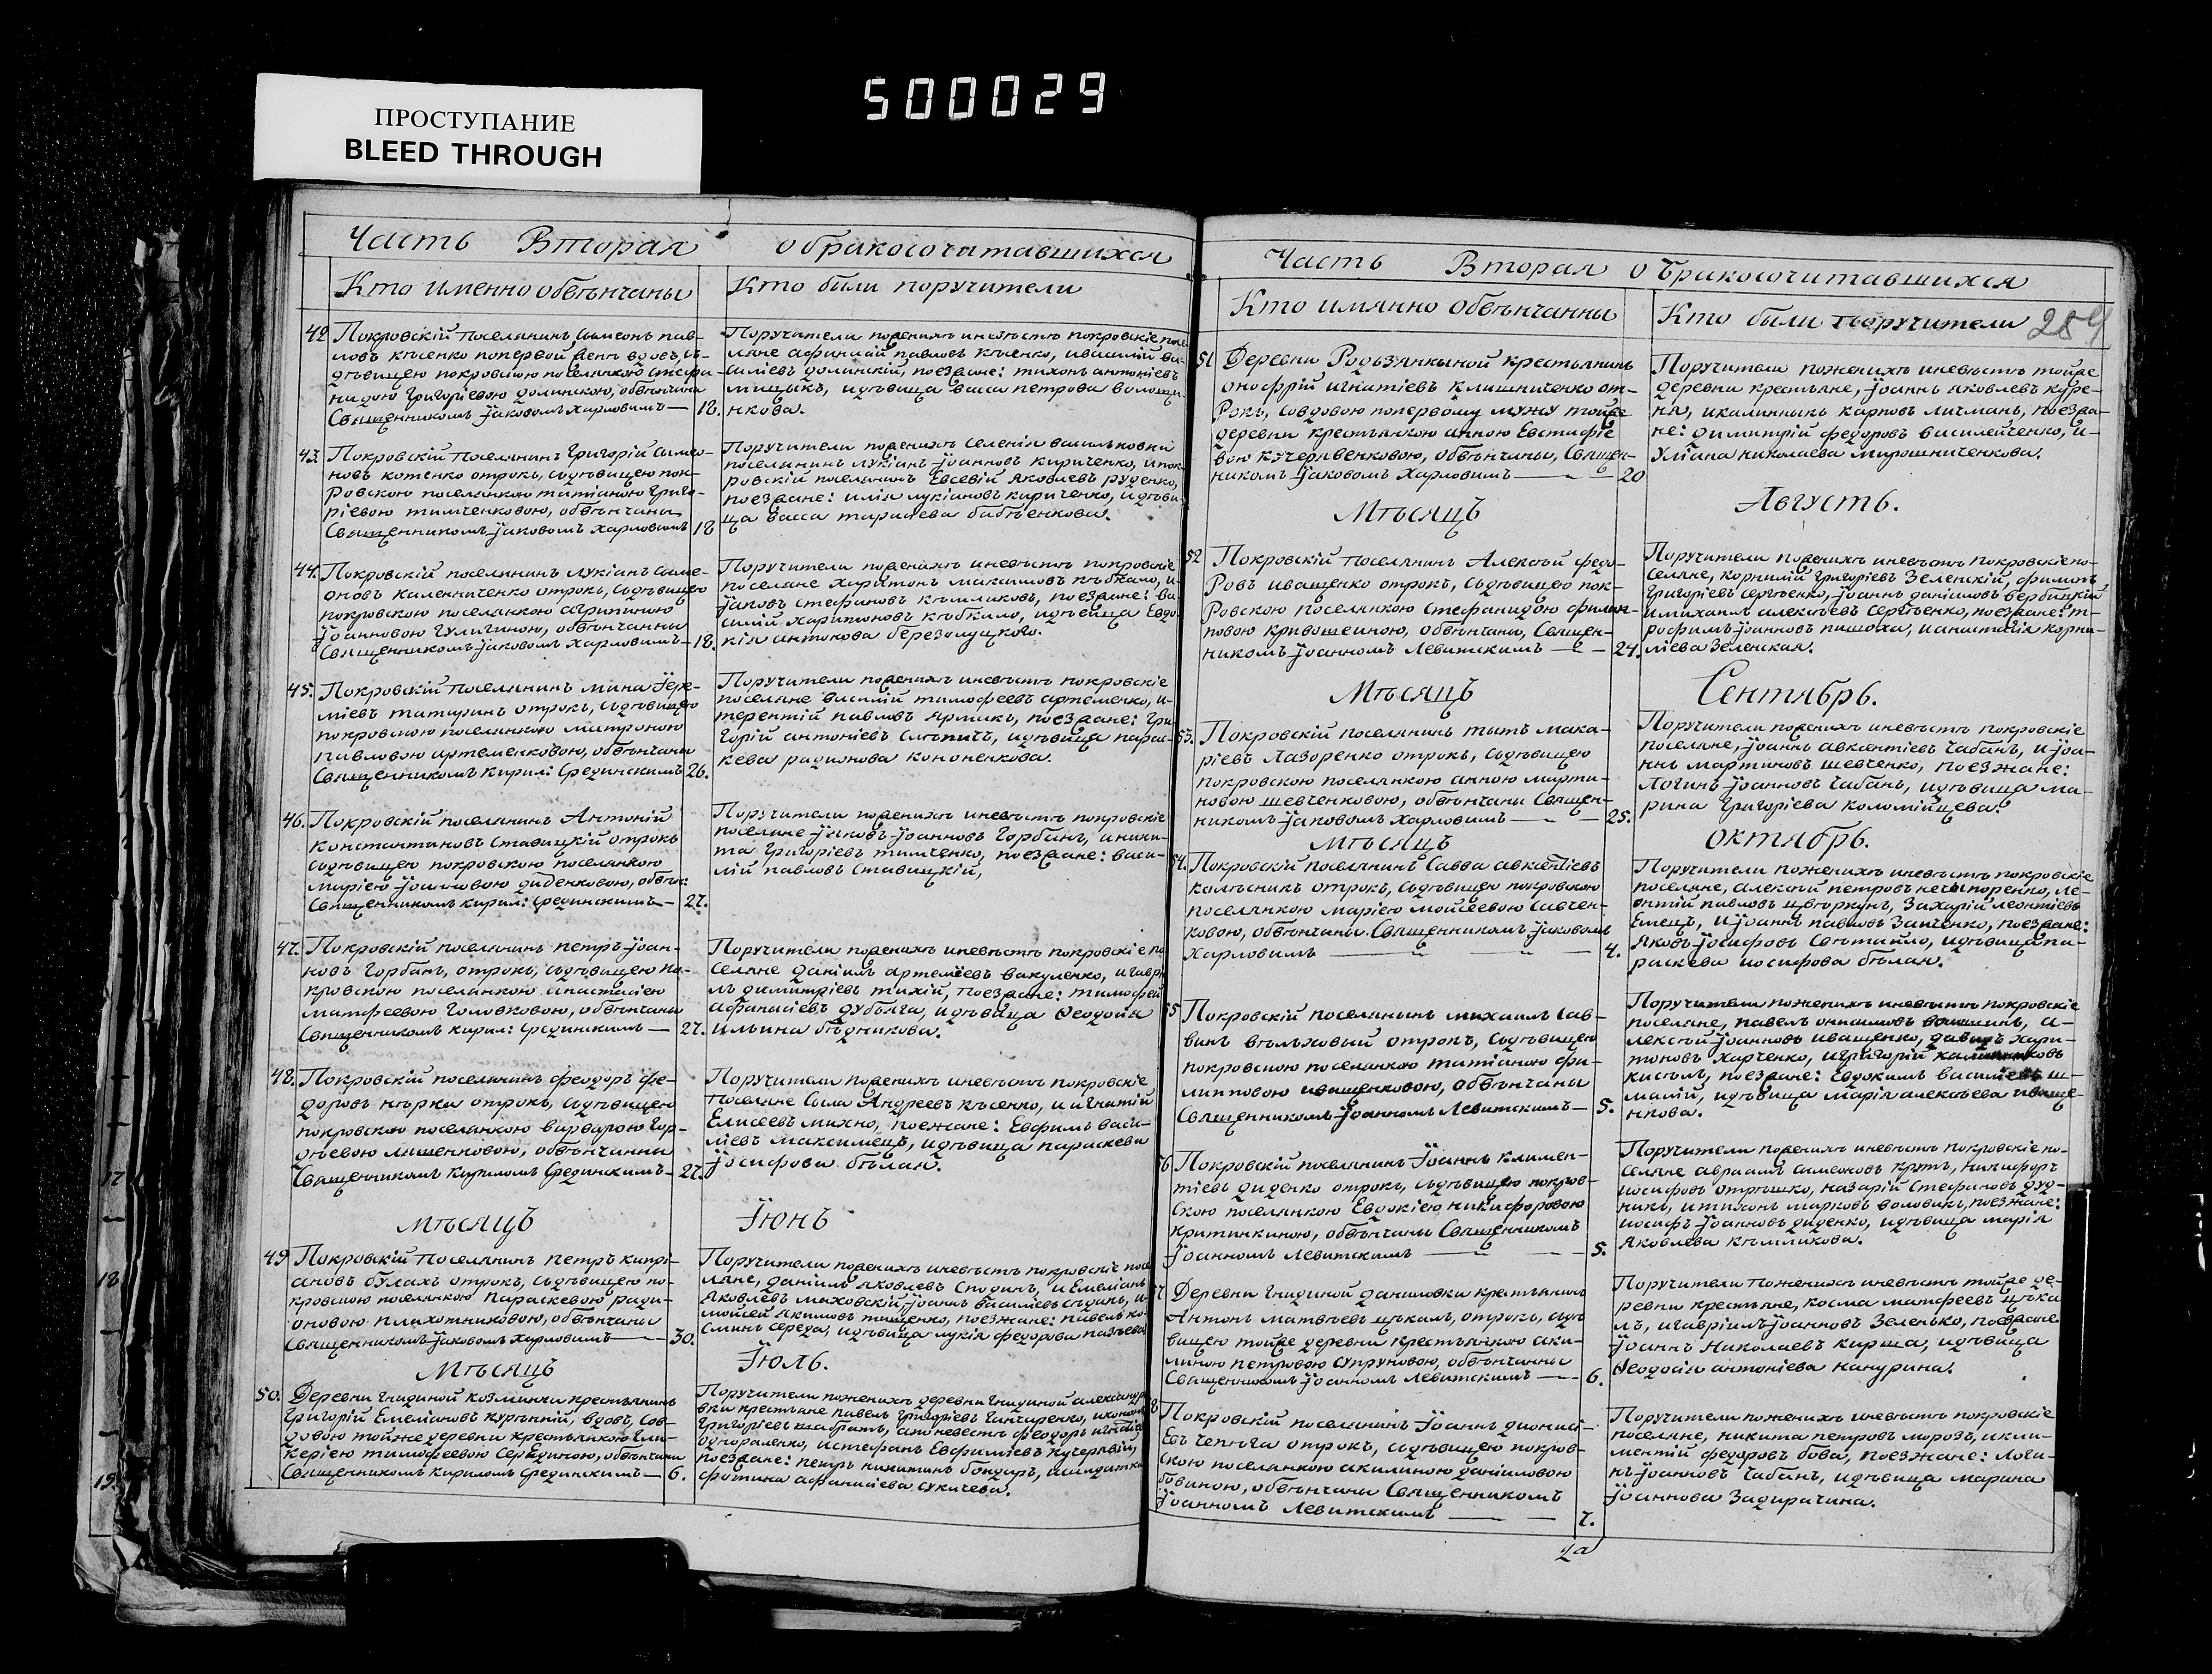 500029
ПРОСТУПАНИЕ
BLEED THROUGH
Часть Вторая о бракосочитавшихся
Кто именно обвѣнчаны
Кто были поручители
42 Покровскій поселянинъ Сѵмеонъ пав-
ловъ кѣсенко попервой женѣ вдовъ, съ-
дѣвицею покровскою поселянкою стефа-
нидою Григоріевою долинскою, обвѣнчаны
Священникомъ Іаковомъ Харловимъ — 18.
Поручители поженихѣ иневѣстѣ покровскіе посе-
ляне афанасій павловъ кѣсенко, ивасилій ва-
силіевъ долинскій, поезжане: тихонъ антоніевъ
мицикъ, идѣвица васса петрова волощи-
нкова.
43. Покровскій поселянинъ Григорій Сѵмео-
новъ котенко отрокъ, сьдѣвицею пок-
ровскою поселянкою татіаною Григо-
ріевою тимченковою, обвѣнчаны
Священникомъ Іаковомъ Харловимъ 18
Поручители поженихѣ селенія васильковки
поселянинъ лукіанъ Іоанновъ кириченко, ипок-
ровскій поселянинъ Евсевій Яковлевъ руденко,
поезжане: илія лукіановъ кириченко, идѣви-
ца васса тарасіева бабѣенкова.
44. Покровскій поселянинъ лукіанъ Сѵме-
оновъ каленниченко отрокъ, сьдѣвицею
покровскою поселянкою агрипиною
Іоанновою Гулигиною, обвѣнчанны
Священникомъ Іаковомъ Харловимъ — 18.
Поручители поженихѣ иневѣстѣ покровскіе
поселяне харитонъ максимовъ кѣбкало, и-
Іаковъ стефановъ кѣмликовъ, поезжане: ва-
силій харитоновъ кѣбкало, идѣвица Евдо-
кія антонова березоцукого.
45. Покровскій поселянинъ мина Іере-
міевъ татаринъ отрокъ, сьдѣвицею
покровскою поселянкою матроною
павловою артеменковою, обвѣнчаны
Священникомъ кирил: Срединскимъ 26.
Поручители поженихѣ иневѣстѣ покровскіе
поселяне василій тимофеевъ артеменко, и-
терентій павловъ ярмакъ, поезжане: Гри-
горій антоніевъ слѣпичъ, идѣвица парас-
кева радионова кононенкова.
46. Покровскій поселянинъ Антоній
константиновъ ставицкій отрокъ
сьдѣвицею покровскою поселянкою
маріею Іоанновою диденковою, обвѣн:
Священникомъ кирил: Срединскимъ — 27.
Поручители поженихѣ иневѣстѣ покровскіе
поселяне Іаковъ Іоанновъ Горбань, иники-
та Григоріевъ тимченко, поезжане: васи-
лій павловъ ставицкій,
47. Покровскій поселянинъ петръ Іоан-
новъ Горбань, отрокъ, сьдѣвицею по-
кровскою поселянкою анастасіею
матфеевою Головковою, обвѣнчаны
Священникомъ кирил: Срединскимъ — 27.
Поручители поженихѣ иневѣстѣ покровскіе по-
селяне даніилъ артеміевъ вакуленко, игаврі-
лъ димитріевъ тихій, поезжане: тимофей
афанасіевъ дубѣга, идѣвица Ѳеодосія
ильина бѣдникова.
48. Покровскій поселянинъ феодоръ фе-
доровъ нѣрка отрокъ, сьдѣвицею
покровскою поселянкою варварою Гор-
дѣевою ляшенковою, обвѣнчанны
Священникомъ Кириломъ Срединскимъ — 27.
Поручители поженихѣ иневѣстѣ покровскіе
поселяне Сыла Андреевъ кѣсенко, и игнатій
Елисеевъ михно, поежане: Евфимъ васи-
ліевъ максимецъ, идѣвица параскева
Іосифова бѣлая.
Мѣсяцъ Іюнь
49 Покровскій поселянинъ петръ кипрі-
ановъ булахъ отрокъ, сьдѣвицею по-
кровскою поселянкою параскевою ради-
оновою плахотниковою, обвѣнчаны
Священникомъ Іаковомъ Харловимъ — 30.
Поручители поженихѣ иневѣстѣ покровскіе посе-
ляне, даніилъ яковлевъ Сподинъ, и Емеліанъ
Яковлевъ маховскій, Іоаннъ василіевъ сѣдинъ, и-
мойсей Якимовъ тищенко, поезжане: павелъ ко-
сминъ середа, идѣвица лукія федорова
Мѣсяцъ Іюль.
50. Деревни Гнидиной козминки крестьянинъ
Григорій Емеліановъ курѣпній, вдовъ, сов-
довою тойже деревни крестьянкою Гли-
керіею тимофеевою Серединою, обвѣнчаны
Священникомъ кириломъ Срединскимъ — 6.
Поручители поженихѣ деревни Гнидиной александро-
вки крестьяне павелъ Григоріевъ Ганчаренко,
Григоріевъ шабратъ, апоневестѣ феодоръ
одчораленко, истефанъ Евфиміевъ кучерявій,
поезжане: петръ никитинъ бондаръ, исолдатка
фотина афанасіева сукачева.
Часть Вторая о Бракосочитавшихся
Кто имянно обвѣнчанны
Кто были поручители 284
51 Деревни Родзянкыной крестьянинъ
онофрій игнатіевъ клишниченко от-
рокъ, совдовою попервому мужу тойже
деревни крестьянкою анною Евстафіе-
вою кучерявенковою, обвѣнчаны, Священ-
никомъ Іаковомъ Харловимъ — 20
Поручители поженихѣ иневѣстѣ тойже
деревни крестьяне, Іоаннъ яковлевъ куре-
на, икалинникъ карповъ личманъ, поезжа-
не: димитрій федоровъ василейченко, и-
Уліана николаева мирошниченкова.
Мѣсяцъ Августъ.
52 Покровскій поселянинъ Алексѣй федо-
ровъ иващенко отрокъ, сьдѣвицею пок-
ровскою поселянкою стефанидою филип-
повою кривошеиною, обвѣнчаны, Священ-
никомъ Іоанномъ Левитскимъ — 24.
Поручители поженихѣ иневѣстѣ покровскіе по-
селяне, корнилій Григоріевъ Зеленскій, филипъ
Григоріевъ сергѣенко, Іоаннъ даніиловъ вербицкій
имихаилъ алексѣевъ сергѣенко, поезжане: т-
рофимъ Іоанновъ пишоха, ианастасія корни-
ліева Зеленская.
Мѣсяцъ Сентябрь.
53. Покровскій поселянинъ тытъ мака-
ріевъ Лазоренко отрокъ, сьдѣвицею
покровскою поселянкою анною марти-
новою шевченковою, обвѣнчаны Священ-
никомъ Іаковомъ Харловимъ — 25.
Поручители поженихѣ иневѣстѣ покровскіе
поселяне, Іоаннъ авксентіевъ Чабанъ, и Іоа-
ннъ мартиновъ шевченко, поезжане:
Логинъ Іоанновъ Чабанъ, идѣвица ма-
рина Григоріева коломійцева.
Мѣсяцъ Октябрь.
54. Покровскій поселянинъ Савва авксентіевъ
калѣсникъ отрокъ, сьдѣвицею покровскою
поселянкою маріею мойсеевою савчен-
ковою, обвѣнчаны Священникомъ Іаковомъ
Харловимъ — 4.
Поручители поженихѣ иневѣстѣ покровскіе
поселяне, алексѣй петровъ нечыпоренко, ле-
онтій павловъ цвѣркунъ, Захарій леонтіевъ
Емецъ, и Іоаннъ павловъ Заиченко, поезжане:
Яковъ Іосифовъ свѣтайло, идѣвица па-
раскева иосифова бѣлая.
55 Покровскій поселянинъ михаилъ сав-
винъ вѣльховый отрокъ, сьдѣвицею
покровскою поселянкою татіаною фи-
липповою иващенковою, обвѣнчаны
Священникомъ Іоанномъ Левитскимъ — 5.
Поручители поженихѣ иневѣстѣ покровскіе
поселяне, павелъ онисимовъ волошинъ, а-
лексѣй Іоанновъ иващенко, давидъ хари-
тоновъ харченко, игригорій
кисѣль, поезжане: Евдокимъ василіевъ ш-
малій, идѣвица марія алексѣева иваще-
нкова.
56 Покровскій поселянинъ Іоаннъ климен-
тіевъ диденко отрокъ, сьдѣвицею покров-
скою поселянкою Евдокіею никифоровою
критинкиною, обвѣнчаны Священникомъ
Іоанномъ Левитскимъ — 5.
Поручители поженихѣ иневѣстѣ покровскіе по-
селяне авраамъ симеоновъ кротъ, никифоръ
иосифовъ отрѣшко, назарій стефановъ дуд-
никъ, итихонъ марковъ воловикъ, поезжане:
иосифъ Іоанновъ диденко, идѣвица марія
Яковлева кѣмликова.
57 Деревни Гнидиной даниловки крестьянинъ
Антонъ матвѣевъ цѣкалъ, отрокъ, сьдѣ-
вицею тойже деревни крестьянкою аки-
линою петровою супруновою, обвѣнчанны
Священникомъ Іоанномъ Левитскимъ — 6.
Поручители поженихѣ иневѣстѣ тойже де-
ревни крестьяне, косма матфеевъ цѣка-
лъ, игавріилъ Іоанновъ Зеленько, поезжане
Іоаннъ Николаевъ кирша, идѣвица
Ѳеодосія антоніева качурина.
58 Покровскій поселянинъ Іоаннъ дионисі-
евъ чепюга отрокъ, сьдѣвицею покров-
скою поселянкою акилиною даніиловою
бовиною, обвѣнчаны Священникомъ
Іоанномъ Левитскимъ — 7.
Поручители поженихѣ иневѣстѣ покровскіе
поселяне, никита петровъ морозъ, икли-
ментій федоровъ бова, поезжане: Логи-
нъ Іоанновъ Чабанъ, идѣвица марина
Іоаннова Задирачина.